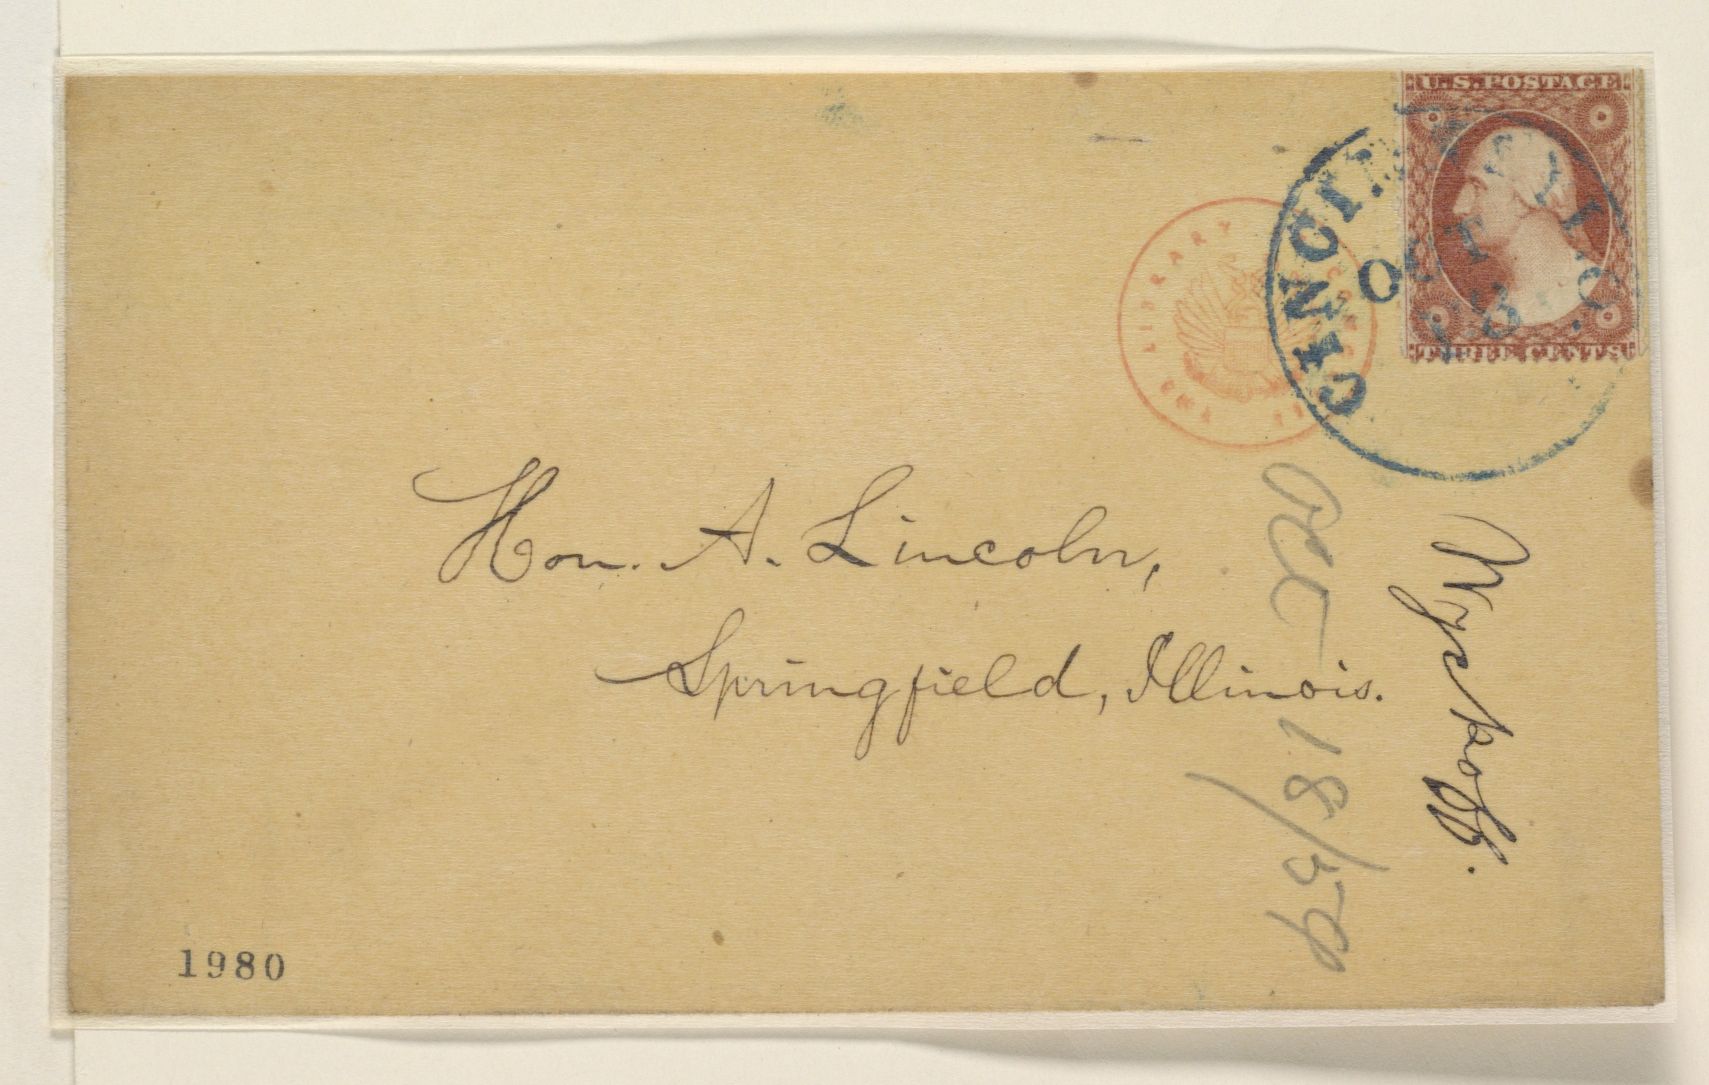 U.S.POSTAGE
THREE CENTS
CINCINNATI O
OCT
18
THE LIBRARY OF CONGRESS
Hon. A. Lincoln,
Springfield, Illinois.
Oct 18/59
Wyckoff.
1980